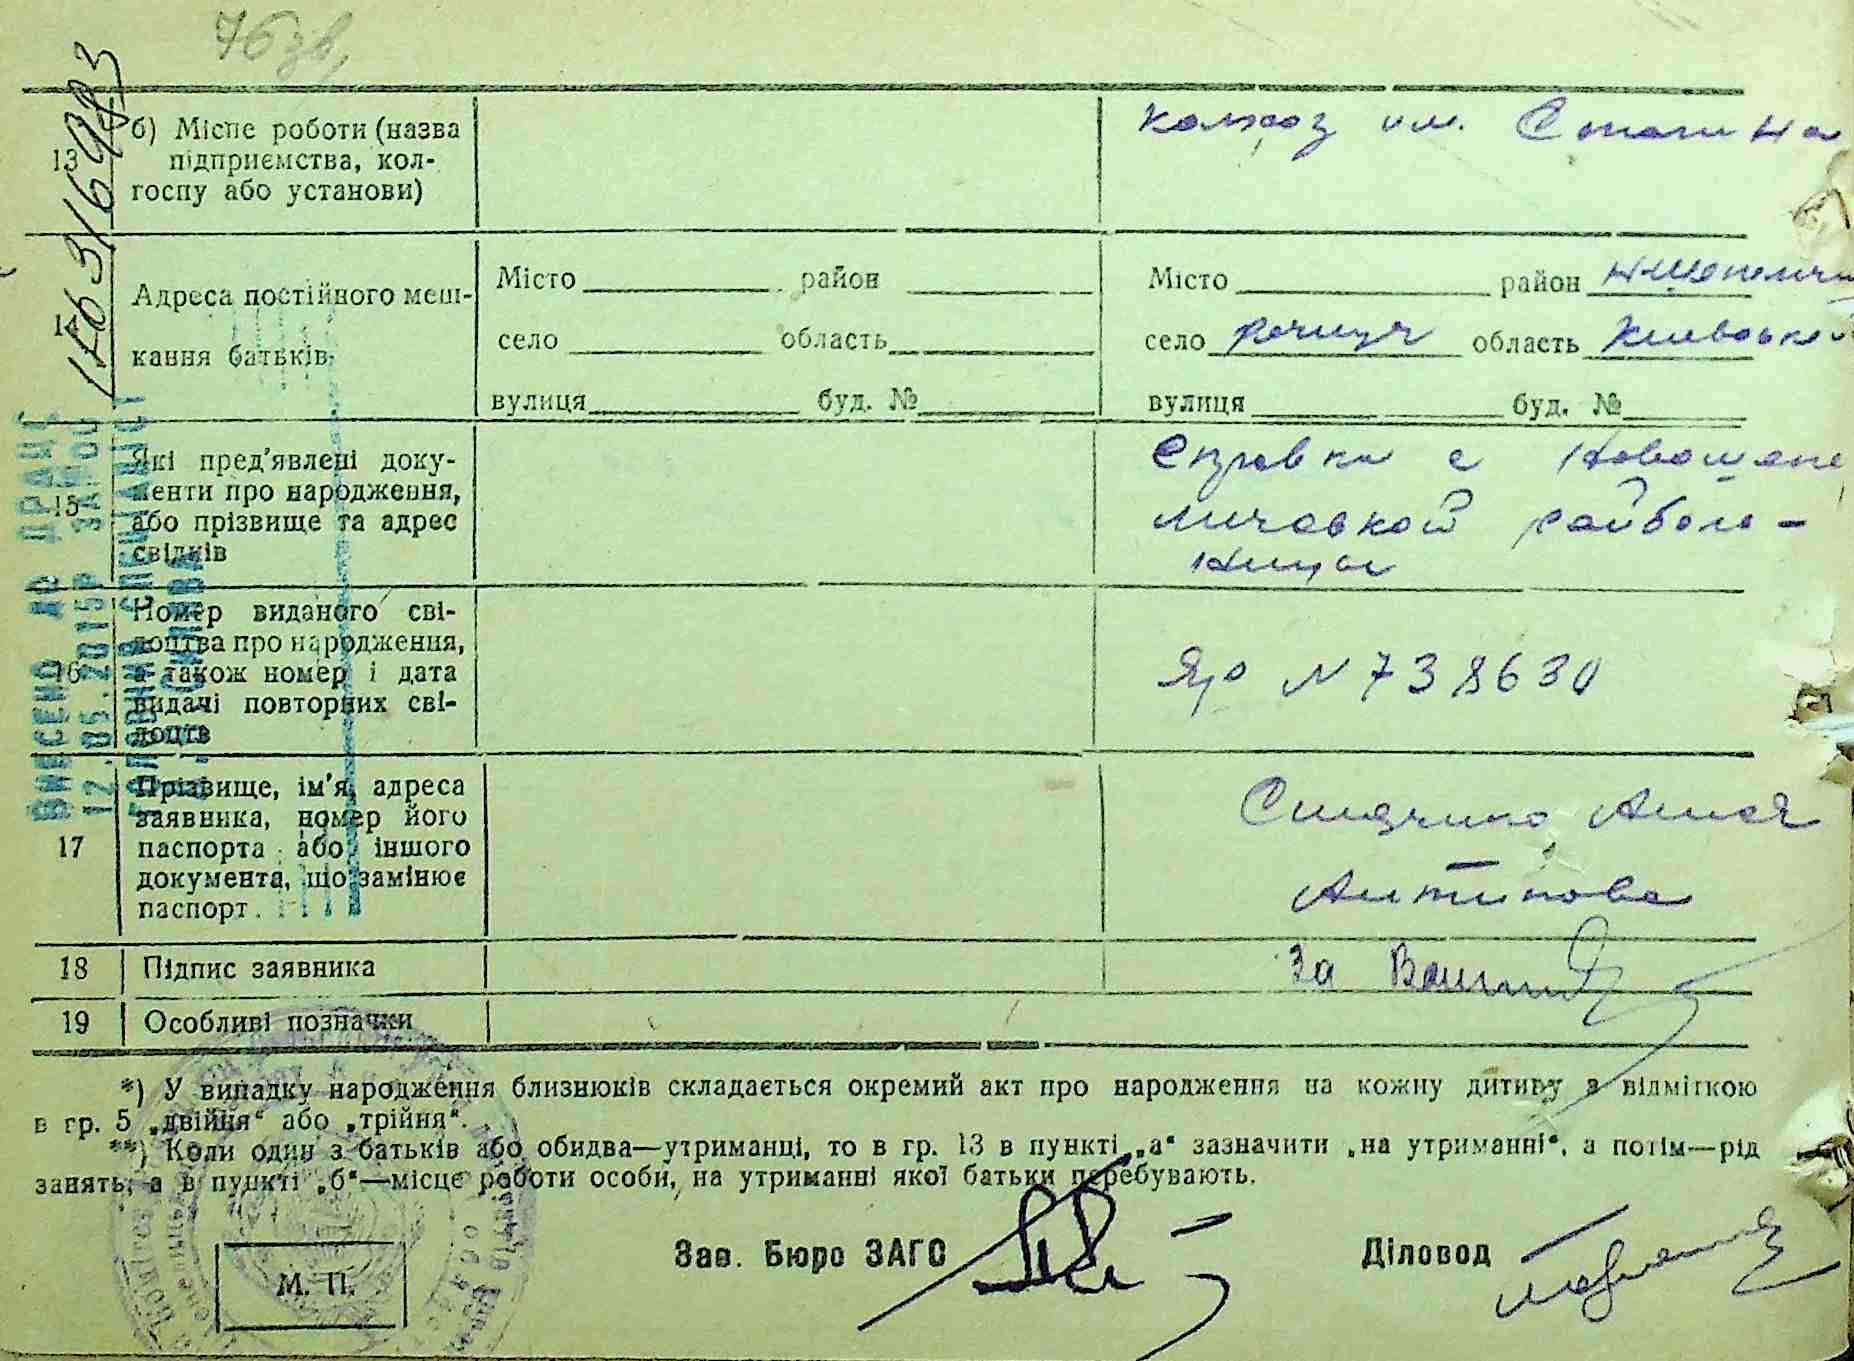 76 зв.
13
б) Місце роботи (назва
підприємства, кол-
госпу або установи)
колхоз им. Сталина
14
Адреса постійного меш-
кання батьків
Місто район
село область
вулиця буд. №
Місто район Н-Шепелич
село Речица область Киевской
вулиця буд. №
15
Які пред'явлені доку-
менти про народження,
або прізвище та адрес
свідків
Справка с Новошепе
личевской райболь-
ницы
16
Номер виданого сві-
доцтва про народження,
а також номер і дата
видачі повторних сві-
доцтв
N 738630
17
Прізвище, ім'я, адреса
заявника, номер його
паспорта або іншого
документа, що замінює
паспорт.
Антипова
18 Підпис заявника
За
19 Особливі позначки
*) У випадку народження близнюків складається окремий акт про народження на кожну дитину з відміткою
в гр. 5 „двійня“ або „трійня“.
**) Коли один з батьків або обидва—утриманці, то в гр. 13 в пункті „а“ зазначити „на утриманні“, а потім—рід
занять, а в пункті „б“—місце роботи особи, на утриманні якої батьки перебувають.
Зав. Бюро ЗАГС
Діловод
М. П.
ВНЕСЕНО ДО ДРАЦС
12.05.2015Р
ГОЛОВНИЙ СПЕЦІАЛІСТ